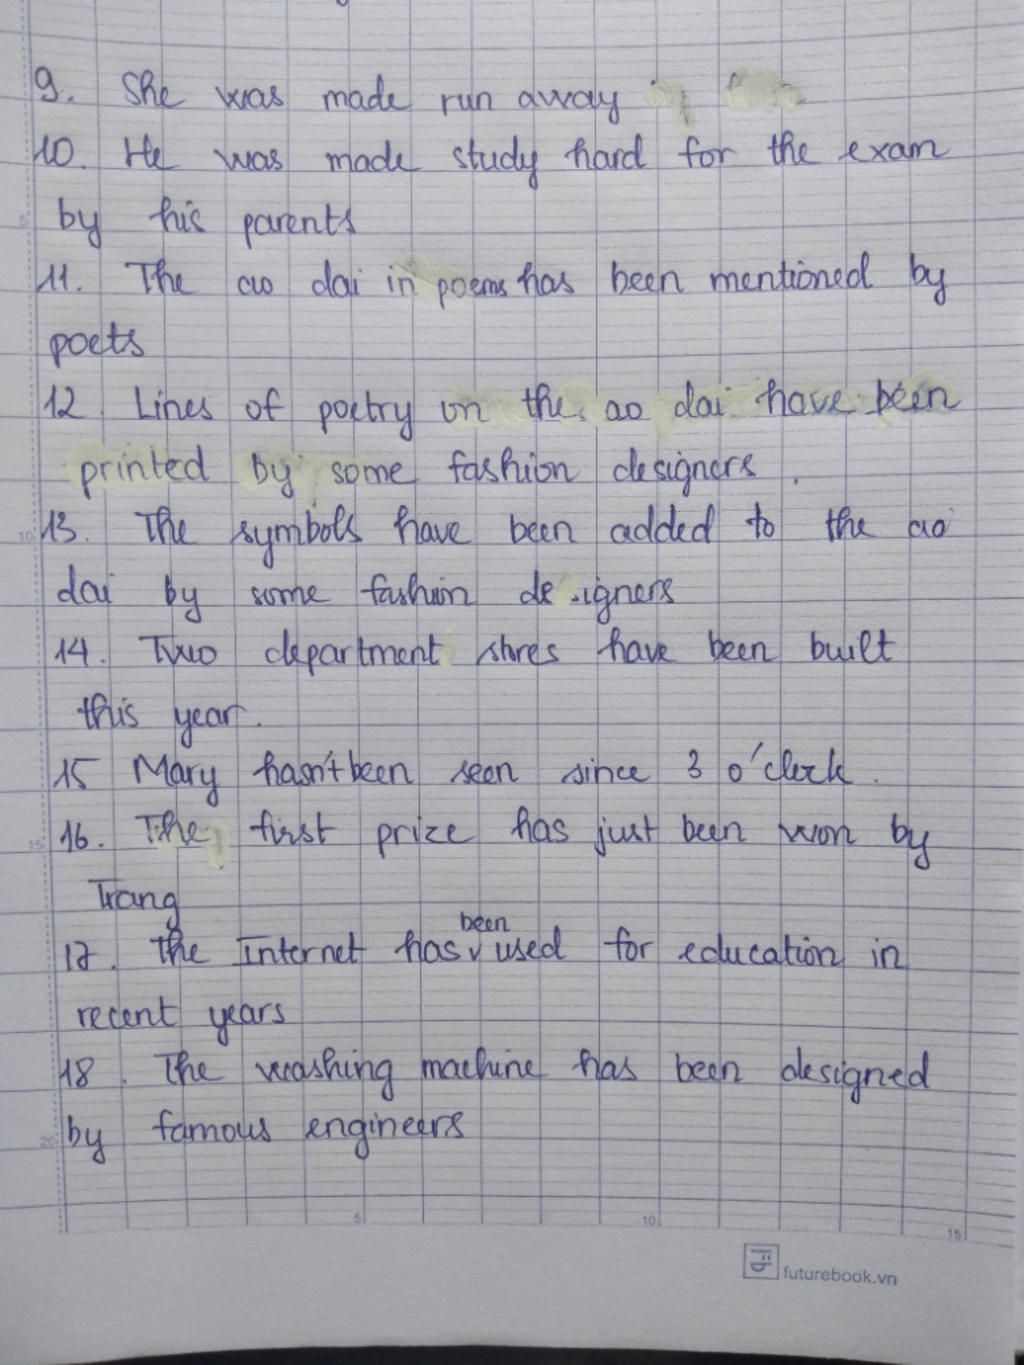 9. She was made run away
10. He was made study hard for the exam
by his parents
11. The ao dai in poems has been mentioned by
poets
12. Lines of poetry on the ao dai have been
printed by some fashion designers.
13. The symbols have been added to the ao
dai by some fashion designers
14. Two department stores have been built
this year.
15 Mary hasn't been seen since 3 o'clock.
16. The first prize has just been won by
Trang
been
17. The Internet has used for education in
recent years
18. The washing machine has been designed
by famous engineers
5
10
15
5
10
15
20
futurebook.vn